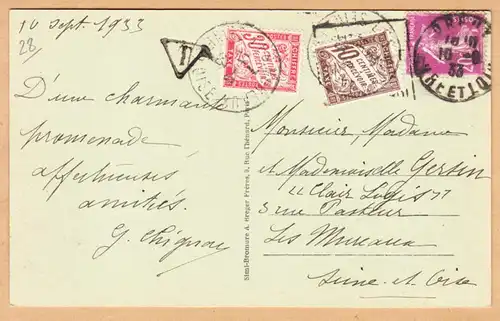 10 Sept. 1933
28
D'une charmante
promenade
affectueuses
amitiés.
G. Chignac
T
30
CENTIMES
10
CENTIMES
A PERCEVOIR
Simi-Bromure A. Breger Frères, 9, Rue Thénard, Paris
Monsieur, Madame
et Mademoiselle Gertin
"Clair Logis"
3 rue Pasteur
Les Mureaux
Seine-et-Oise